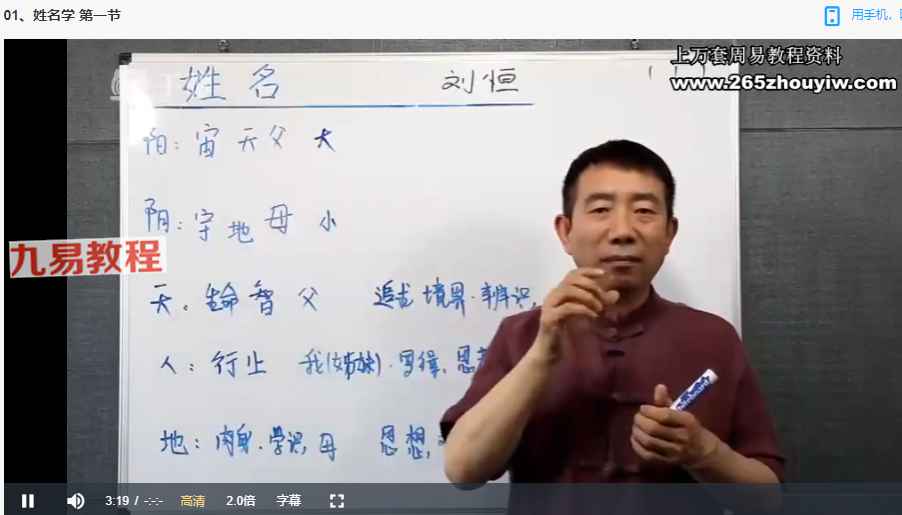 01、姓名学 第一节
用手机、
上万套周易教程资料
www.265zhouyiw.com
姓名 刘恒
阳：宙 天 父 大
阴：宇 地 母 小
九易教程
天。生命 智 父 追求 境界·辨识，
人：行止 我(姊妹)·习得、思
地：肉身·学识，母 思想，
whiteboard
3:19 / -:-:- 高清 2.0倍 字幕